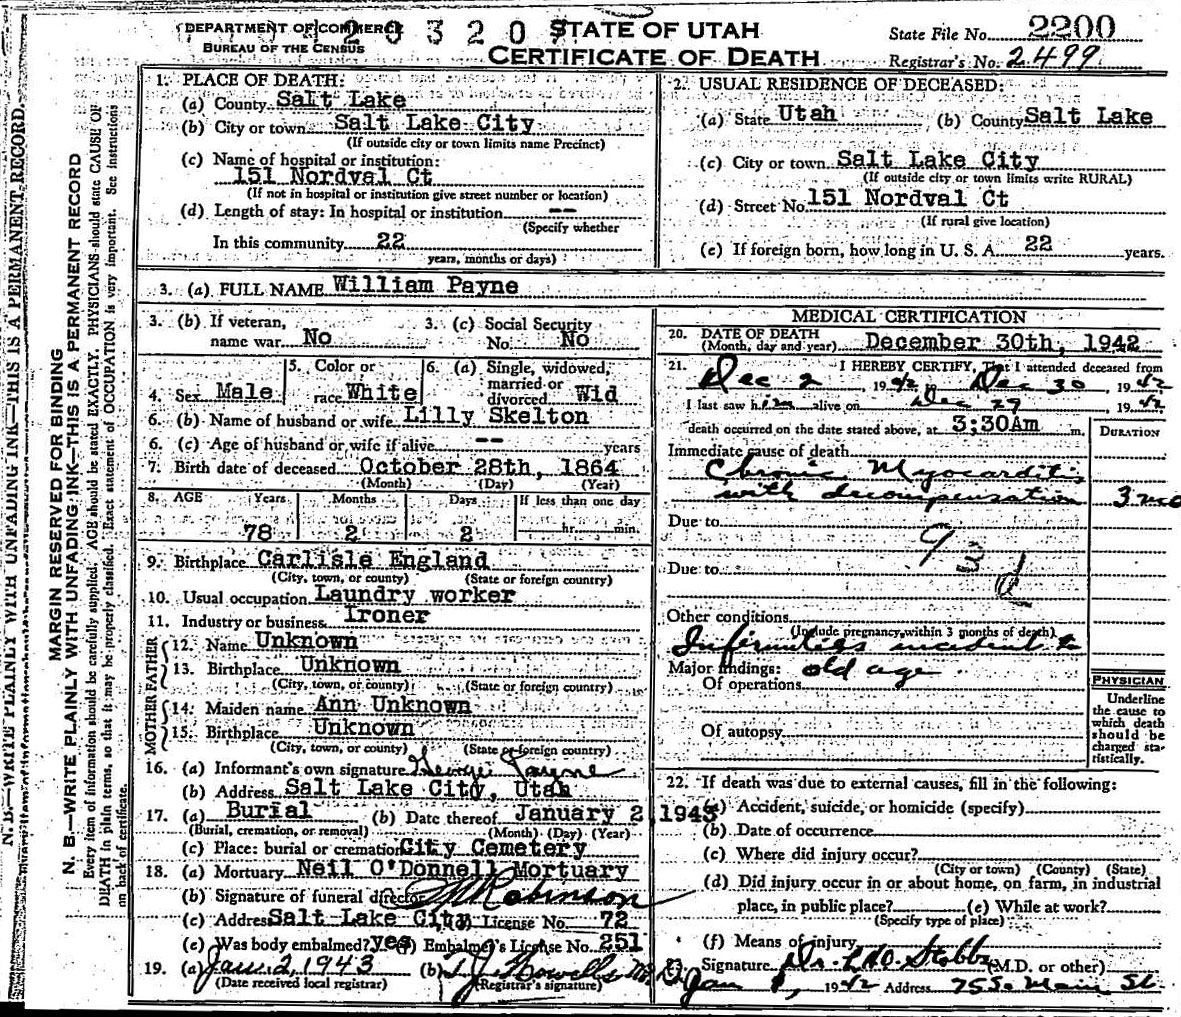 DEPARTMENT OF COMMERCE
BUREAU OF THE CENSUS
2 3 3 2 0
STATE OF UTAH
CERTIFICATE OF DEATH
State File No. 2200
Registrar's No. 2499
1. PLACE OF DEATH:
(a) County Salt Lake
(b) City or town Salt Lake City
(If outside city or town limits name Precinct)
(c) Name of hospital or institution:
151 Nordval Ct
(If not in hospital or institution give street number or location)
(d) Length of stay: In hospital or institution --
(Specify whether
In this community 22
years, months or days)
2. USUAL RESIDENCE OF DECEASED:
(a) State Utah (b) County Salt Lake
(c) City or town Salt Lake City
(If outside city or town limits write RURAL)
(d) Street No. 151 Nordval Ct
(If rural give location)
(e) If foreign born, how long in U. S. A. 22 years.
3. (a) FULL NAME William Payne
3. (b) If veteran, name war No
3. (c) Social Security No. No
4. Sex Male
5. Color or race White
6. (a) Single, widowed, married or divorced Wid
6. (b) Name of husband or wife Lilly Skelton
6. (c) Age of husband or wife if alive -- years
7. Birth date of deceased October 28th, 1864
(Month) (Day) (Year)
8. AGE Years Months Days If less than one day
78 2 2 hr. min.
9. Birthplace Carlisle England
(City, town, or county) (State or foreign country)
10. Usual occupation Laundry worker
11. Industry or business Ironer
FATHER
12. Name Unknown
13. Birthplace Unknown
(City, town, or county) (State or foreign country)
MOTHER
14. Maiden name Ann Unknown
15. Birthplace Unknown
(City, town, or county) (State or foreign country)
16. (a) Informant's own signature George Payne
(b) Address Salt Lake City, Utah
17. (a) Burial (b) Date thereof January 2, 1943
(Burial, cremation, or removal) (Month) (Day) (Year)
(c) Place: burial or cremation City Cemetery
18. (a) Mortuary Neil O'Donnell Mortuary
(b) Signature of funeral director Robinson
(c) Address Salt Lake City (d) License No. 72
(e) Was body embalmed? yes (f) Embalmer's License No. 251
19. (a) Jan. 2, 1943 (b) T. J. Howells
(Date received local registrar) (Registrar's signature)
MEDICAL CERTIFICATION
20. DATE OF DEATH
(Month, day and year) December 30th, 1942
21. I HEREBY CERTIFY, That I attended deceased from
Dec 2, 1942 to Dec 30, 1942
I last saw him alive on Dec 29, 1942
death occurred on the date stated above, at 3;30Am m.
DURATION
Immediate cause of death
Chronic Myocarditis
with decompensation 3 mo
Due to
Due to
Other conditions
(Include pregnancy within 3 months of death)
Infirmities incident to
Major findings: old age
Of operations
Of autopsy
PHYSICIAN
Underline
the cause to
which death
should be
charged sta-
tistically.
22. If death was due to external causes, fill in the following:
(a) Accident, suicide, or homicide (specify)
(b) Date of occurrence
(c) Where did injury occur?
(City or town) (County) (State)
(d) Did injury occur in or about home, on farm, in industrial
place, in public place? (e) While at work?
(Specify type of place)
(f) Means of injury
Signature Dr. Stobbe (M.D. or other)
Jan 1, 1942 Address 75 So. Main St.
N. B.—WRITE PLAINLY WITH UNFADING INK—THIS IS A PERMANENT RECORD.
MARGIN RESERVED FOR BINDING
N. B.—WRITE PLAINLY WITH UNFADING INK—THIS IS A PERMANENT RECORD
Every item of information should be carefully supplied. AGE should be stated EXACTLY. PHYSICIANS should state CAUSE OF
DEATH in plain terms, so that it may be properly classified. Exact statement of OCCUPATION is very important. See instructions
on back of certificate.